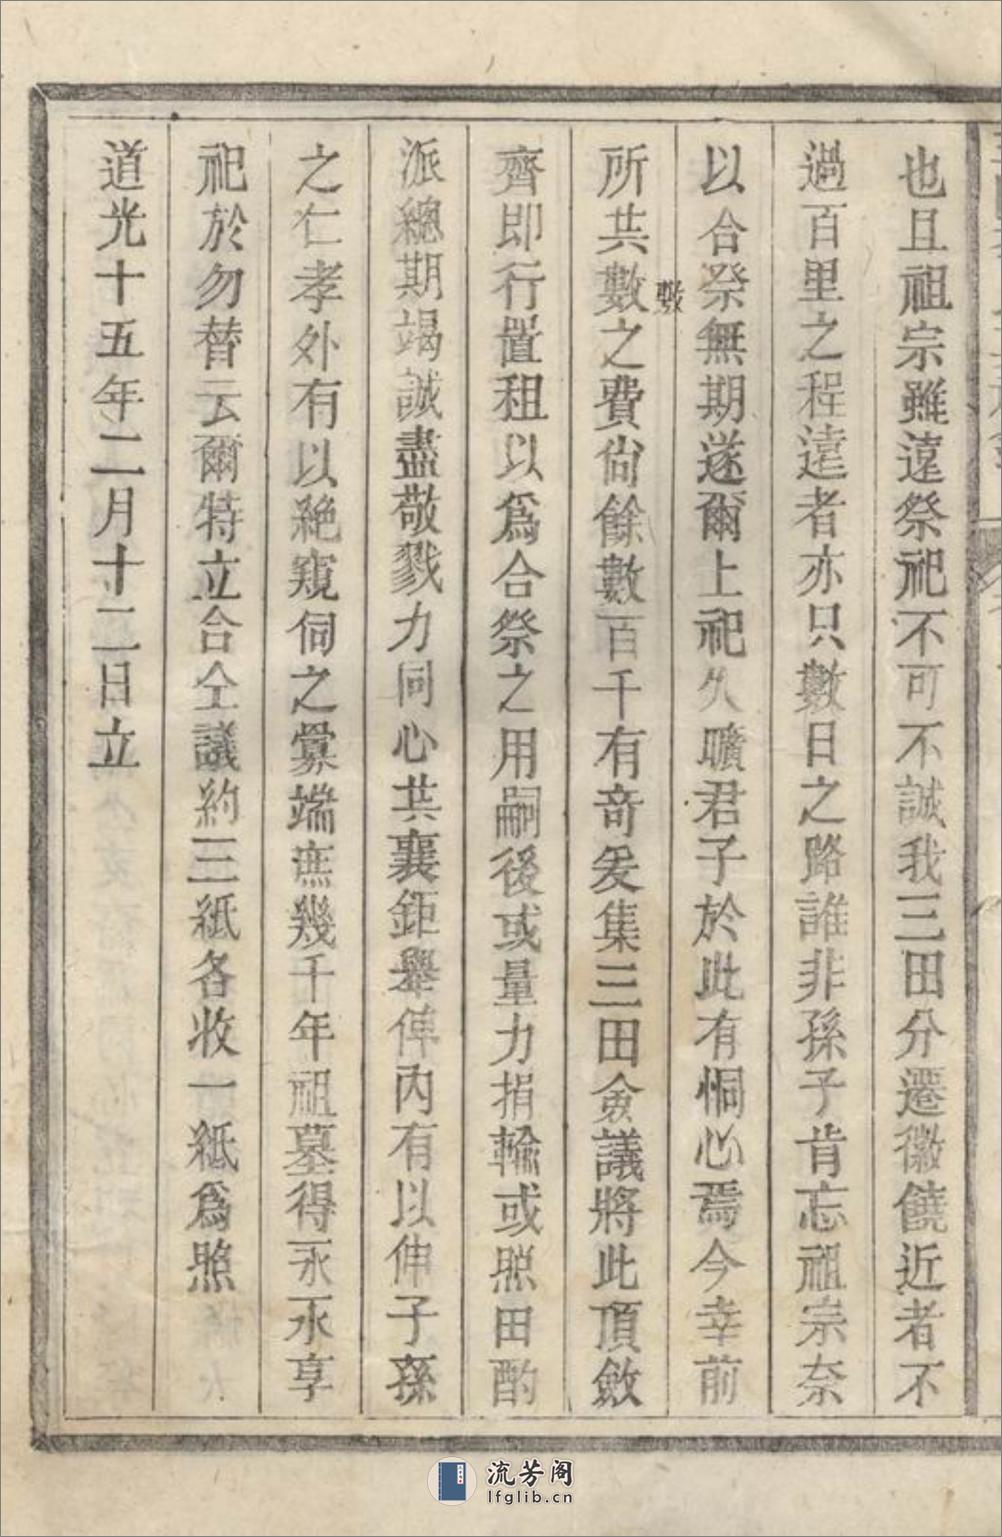 也且祖宗雖遠祭祀不可不誠我三田分遷徽饒近者不
過百里之程遠者亦只數日之路誰非孫子肯忘祖宗奈
以合祭無期遂爾上祀久曠君子於此有恫心焉今幸前
所共數之費尙餘數百千有奇爰集三田僉議將此項斂
齊即行置租以爲合祭之用嗣後或量力捐輸或照田酌
派總期竭誠盡敬戮力同心共襄鉅舉俾內有以伸子孫
之仁孝外有以絶窺伺之釁端庶幾千年祖墓得永永享
祀於勿替云爾特立合仝議約三紙各收一紙爲照
道光十五年二月十二日立
流芳阁
lfglib.cn